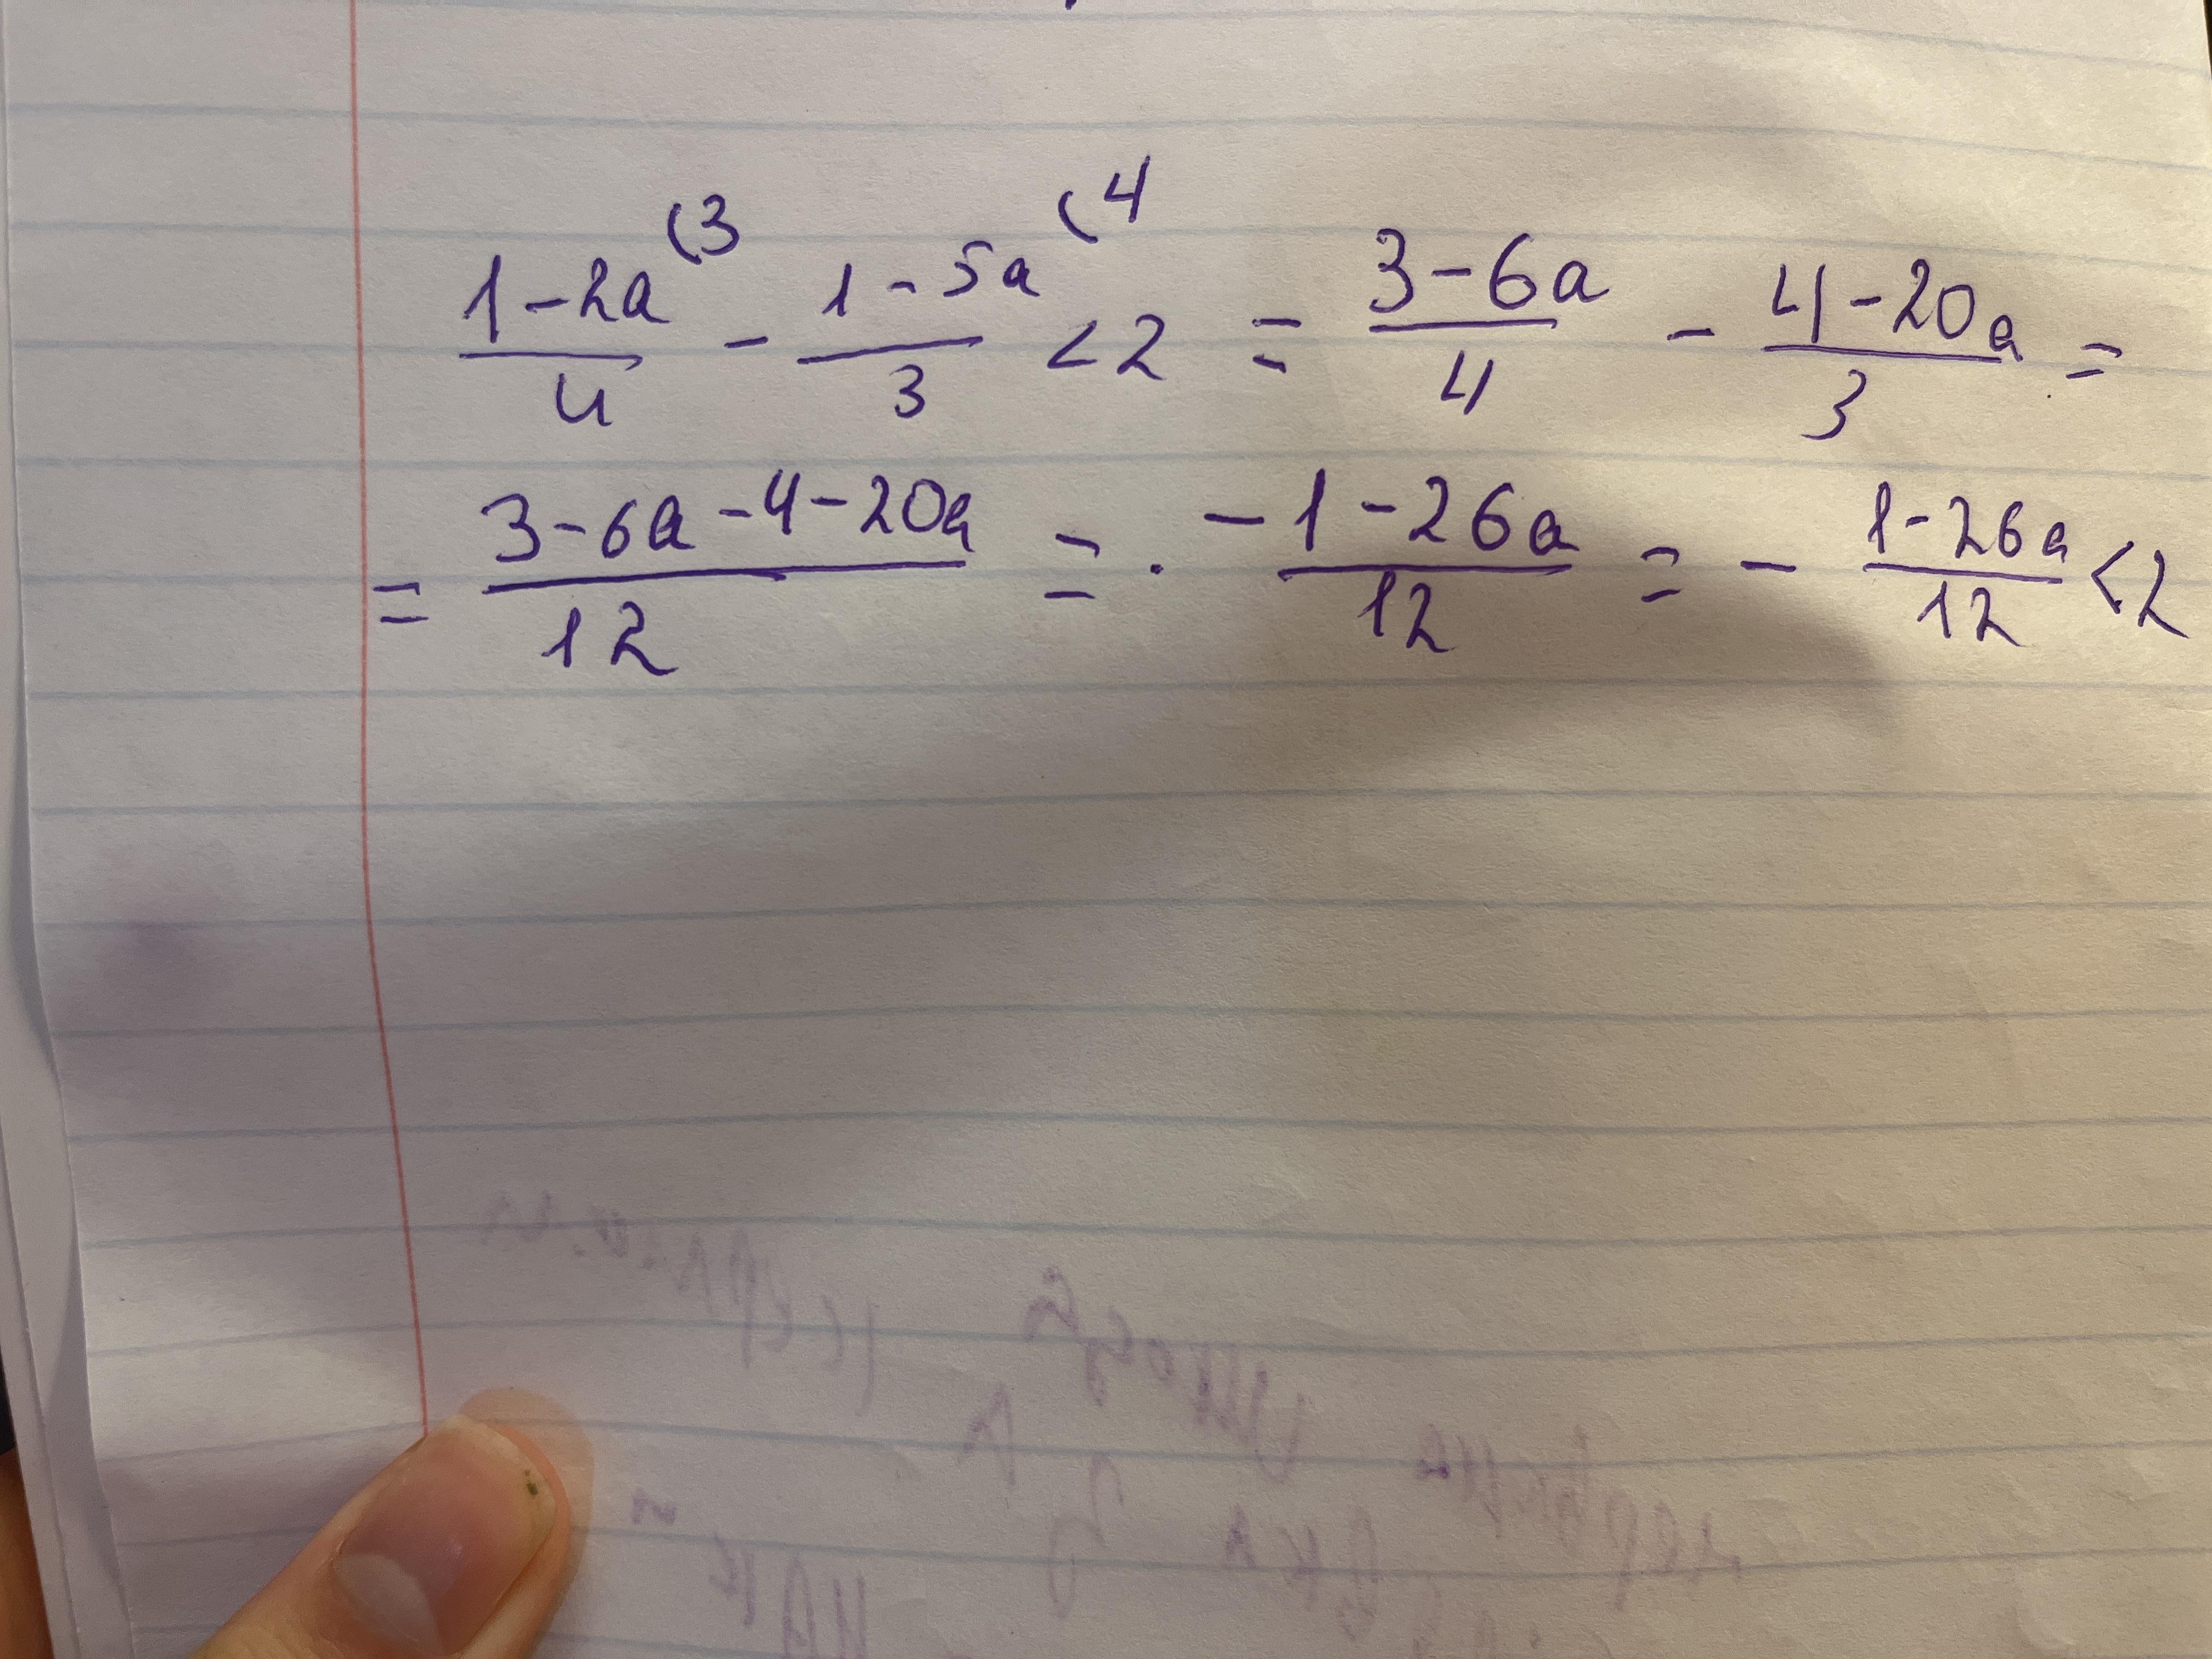 1-2a(3/4 - 1-5a(4/3 <2 = 3-6a/4 - 4-20a/3 =
= 3-6a-4-20a/12 = . -1-26a/12 = - 1-26a/12 <2